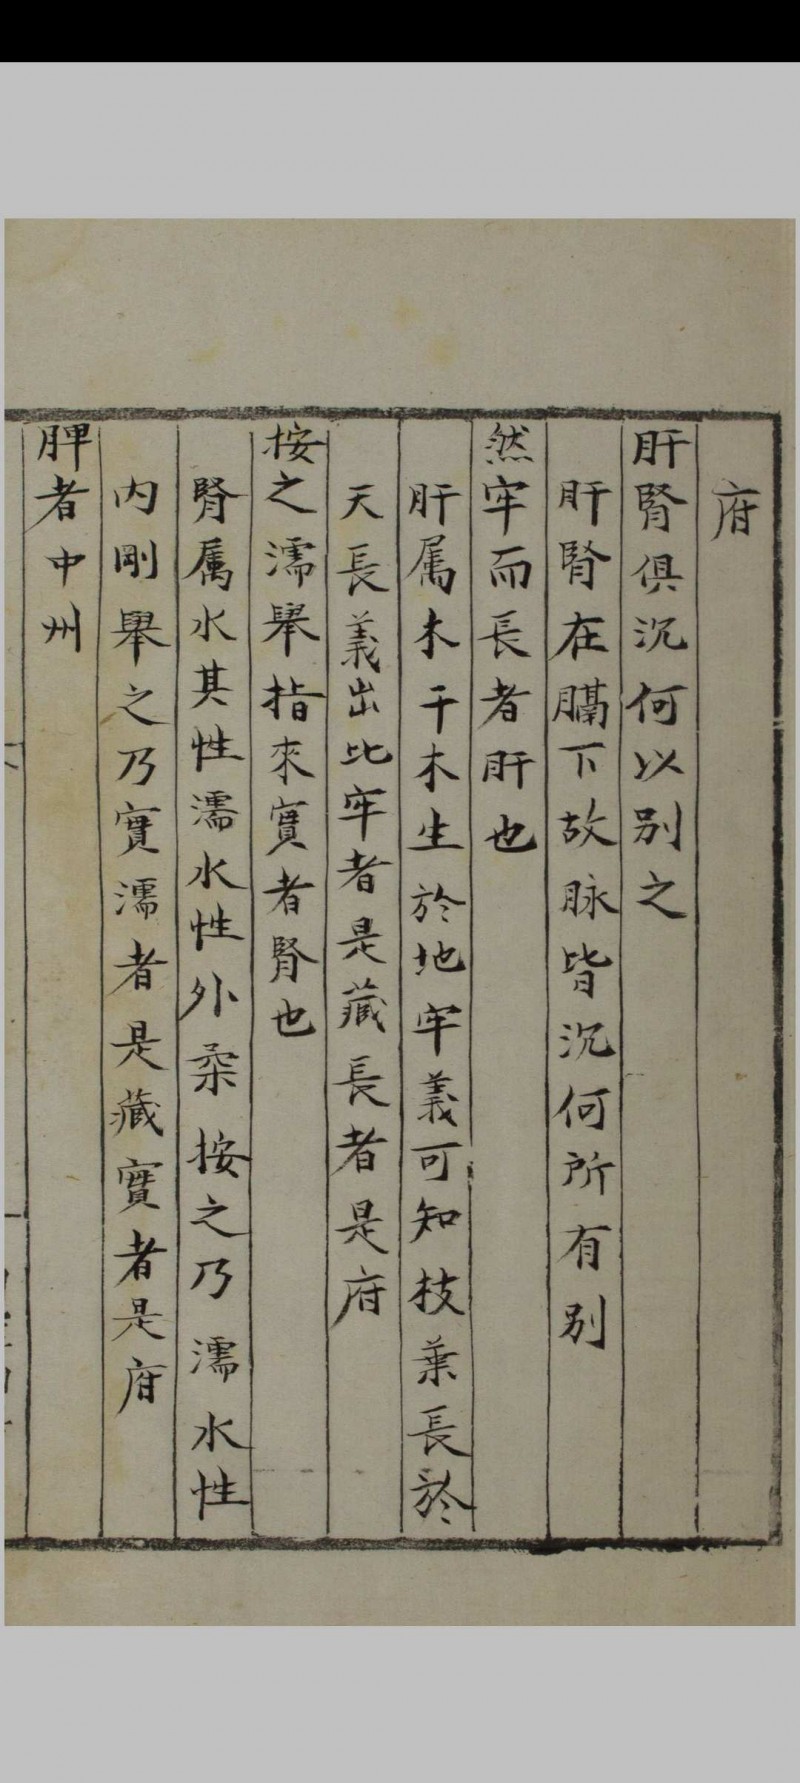 府
肝腎俱沉何以别之
肝腎在膈下故脉皆沉何所有别
然牢而長者肝也
肝属木干木生於地牢義可知枝葉長於
天長義出比牢者是藏長者是府
按之濡舉指來實者腎也
腎属水其性濡水性外柔按之乃濡水性
内剛舉之乃實濡者是藏實者是府
脾者中州